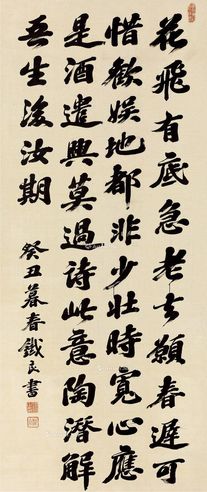 花飛有底急老去願春遲可
惜歡娛地都非少壯時寬心應
是酒遣興莫過詩此意陶潛解
吾生後汝期
癸丑暮春鐵良書